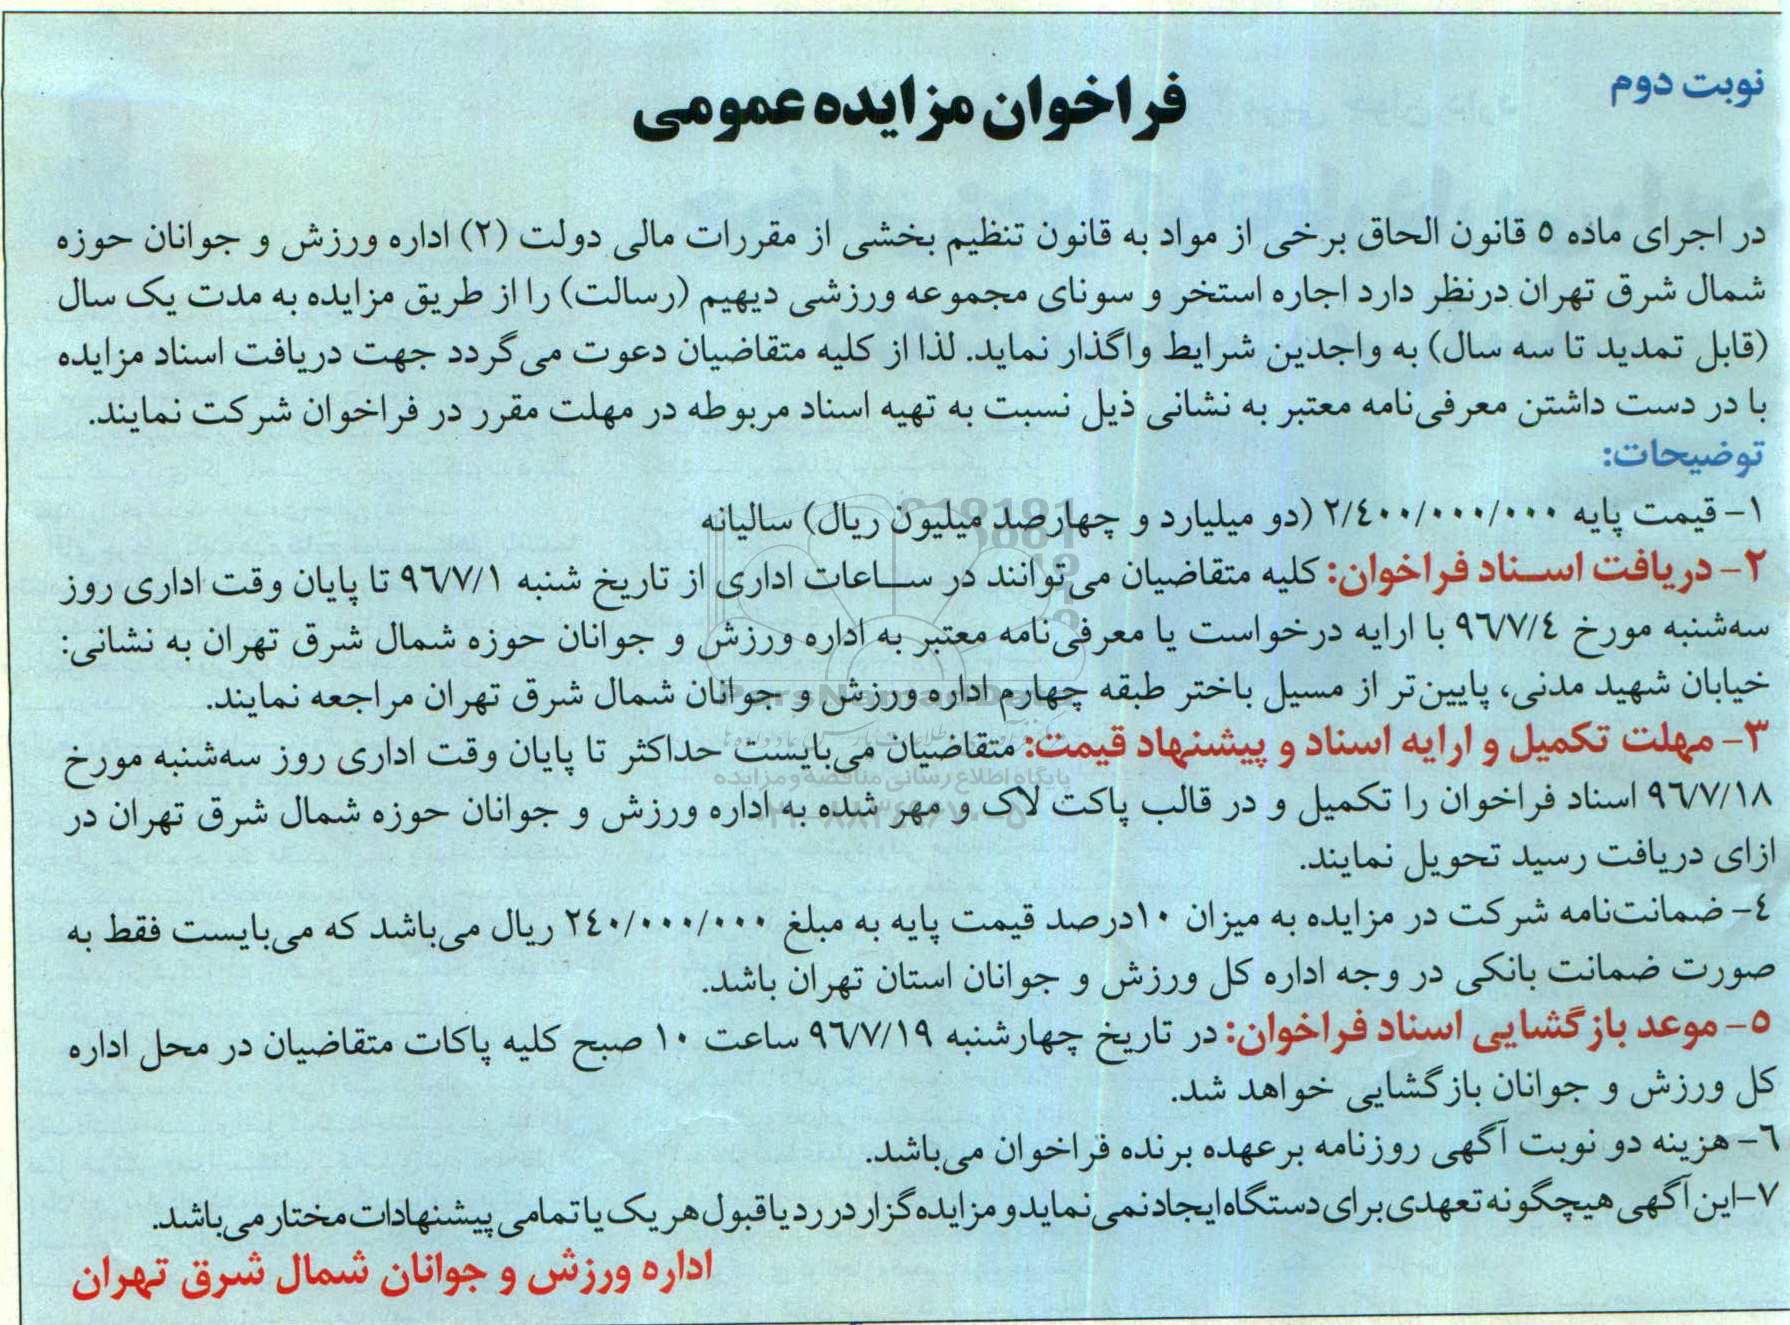 نوبت دوم
فراخوان مزایده عمومی
در اجرای ماده ٥ قانون الحاق برخی از مواد به قانون تنظیم بخشی از مقررات مالی دولت (٢) اداره ورزش و جوانان حوزه
شمال شرق تهران درنظر دارد اجاره استخر و سونای مجموعه ورزشی دیهیم (رسالت) را از طریق مزایده به مدت یک سال
(قابل تمدید تا سه سال) به واجدین شرایط واگذار نماید. لذا از کلیه متقاضیان دعوت می‌گردد جهت دریافت اسناد مزایده
با در دست داشتن معرفی‌نامه معتبر به نشانی ذیل نسبت به تهیه اسناد مربوطه در مهلت مقرر در فراخوان شرکت نمایند.
توضیحات:
١- قیمت پایه ٢/٤٠٠/٠٠٠/٠٠٠ (دو میلیارد و چهارصد میلیون ریال) سالیانه
٢- دریافت اسناد فراخوان: کلیه متقاضیان می‌توانند در ساعات اداری از تاریخ شنبه ٩٦/٧/١ تا پایان وقت اداری روز
سه‌شنبه مورخ ٩٦/٧/٤ با ارایه درخواست یا معرفی‌نامه معتبر به اداره ورزش و جوانان حوزه شمال شرق تهران به نشانی:
خیابان شهید مدنی، پایین‌تر از مسیل باختر طبقه چهارم اداره ورزش و جوانان شمال شرق تهران مراجعه نمایند.
٣- مهلت تکمیل و ارایه اسناد و پیشنهاد قیمت: متقاضیان می‌بایست حداکثر تا پایان وقت اداری روز سه‌شنبه مورخ
پایگاه اطلاع رسانی مناقصه و مزایده
٩٦/٧/١٨ اسناد فراخوان را تکمیل و در قالب پاکت لاک و مهر شده به اداره ورزش و جوانان حوزه شمال شرق تهران در
ازای دریافت رسید تحویل نمایند.
٤- ضمانت‌نامه شرکت در مزایده به میزان ١٠درصد قیمت پایه به مبلغ ٢٤٠/٠٠٠/٠٠٠ ریال می‌باشد که می‌بایست فقط به
صورت ضمانت بانکی در وجه اداره کل ورزش و جوانان استان تهران باشد.
٥- موعد بازگشایی اسناد فراخوان: در تاریخ چهارشنبه ٩٦/٧/١٩ ساعت ١٠ صبح کلیه پاکات متقاضیان در محل اداره
کل ورزش و جوانان بازگشایی خواهد شد.
٦- هزینه دو نوبت آگهی روزنامه برعهده برنده فراخوان می‌باشد.
٧-این آگهی هیچگونه تعهدی برای دستگاه ایجاد نمی‌نماید و مزایده‌گزار در رد یا قبول هر یک یا تمامی پیشنهادات مختار می‌باشد.
اداره ورزش و جوانان شمال شرق تهران